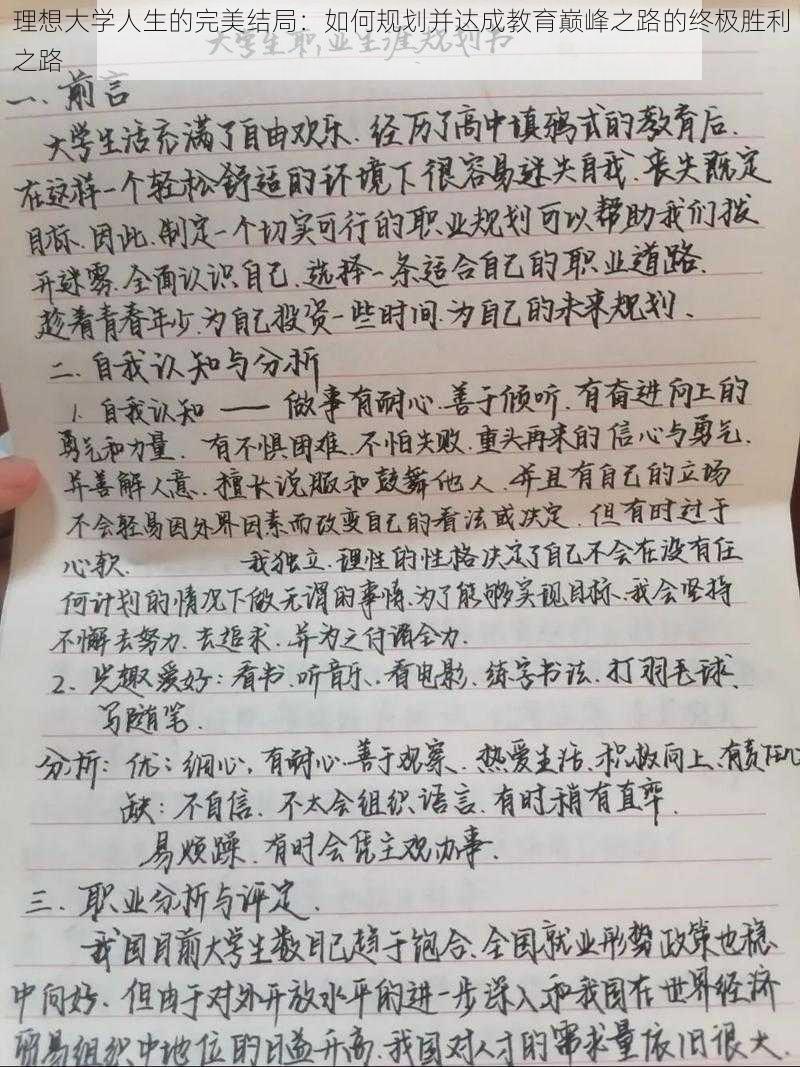 理想大学人生的完美结局：如何规划并达成教育巅峰之路的终极胜利
之路
大学生职业生涯规划书
一、前言
大学生活充满了自由欢乐，经历了高中填鸦式的教育后，
在这样一个轻松舒适的环境下很容易迷失自我、丧失既定
目标，因此，制定一个切实可行的职业规划可以帮助我们拨
开迷雾，全面认识自己，选择一条适合自己的职业道路，
趁着青春年少，为自己投资一些时间，为自己的未来规划、
二、自我认知与分析
1、自我认知 —— 做事有耐心、善于倾听，有奋进向上的
勇气和力量，有不惧困难、不怕失败、重头再来的信心与勇气，
并善解人意、擅长说服和鼓舞他人，并且有自己的立场
不会轻易因外界因素而改变自己的看法或决定，但有时过于
心软， 我独立、理性的性格决定了自己不会在没有任
何计划的情况下做无谓的事情，为了能够实现目标，我会坚持
不懈去努力、去追求，并为之付诸全力.
2、兴趣爱好：看书、听音乐、看电影、练字书法、打羽毛球、
写随笔.
分析：优：细心，有耐心善于观察、热爱生活、积极向上、有责任心
缺：不自信、不太会组织语言，有时稍有直率，
易烦躁，有时会凭主观办事.
三、职业分析与评定.
我国目前大学生数目已趋于饱合，全国就业形势政策也稳
中向好，但由于对外开放水平的进一步深入和我国在世界经济
贸易组织中地位的日益升高，我国对人才的需求量依旧很大.